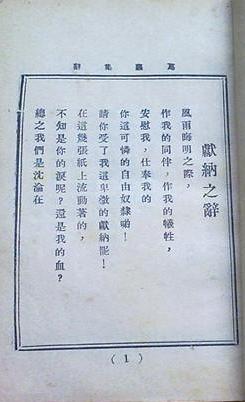 蔦蘿集辭
獻納之辭
風雨晦明之際,
作我的同伴,作我的犧牲,
安慰我,仕奉我的
你這可憐的自由奴隸喲!
請你受了我這卑微的獻納罷!
在這幾張紙上流動著的,
不知是你的淚呢?還是我的血?
總之我們是沈淪在
(1)